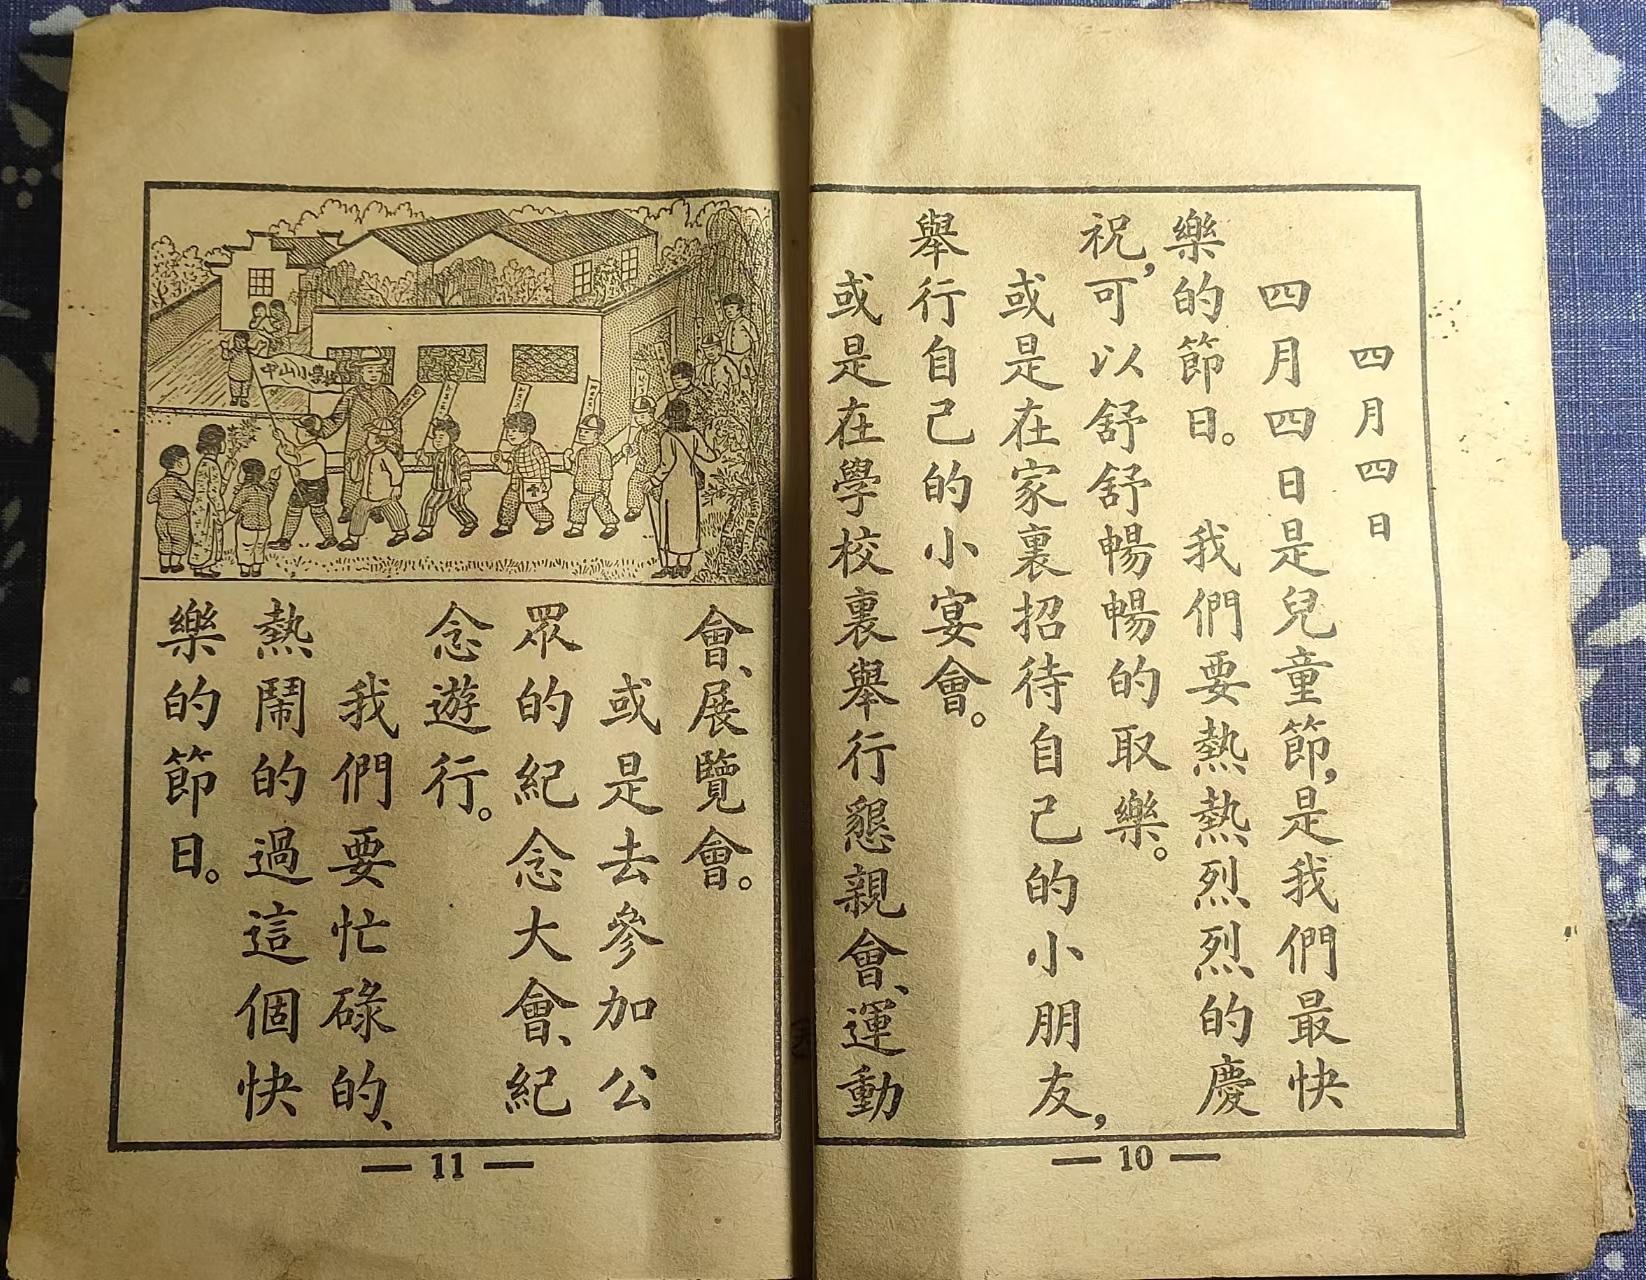 四月四日
四月四日是兒童節，是我們最快
樂的節日。 我們要熱熱烈烈的慶
祝，可以舒舒暢暢的取樂。
或是在家裏招待自己的小朋友，
舉行自己的小宴會。
或是在學校裏舉行懇親會、運動
— 10 —
中山小學校
會、展覽會。
或是去參加公
眾的紀念大會、紀
念遊行。
我們要忙碌的、
熱鬧的過這個快
樂的節日。
— 11 —